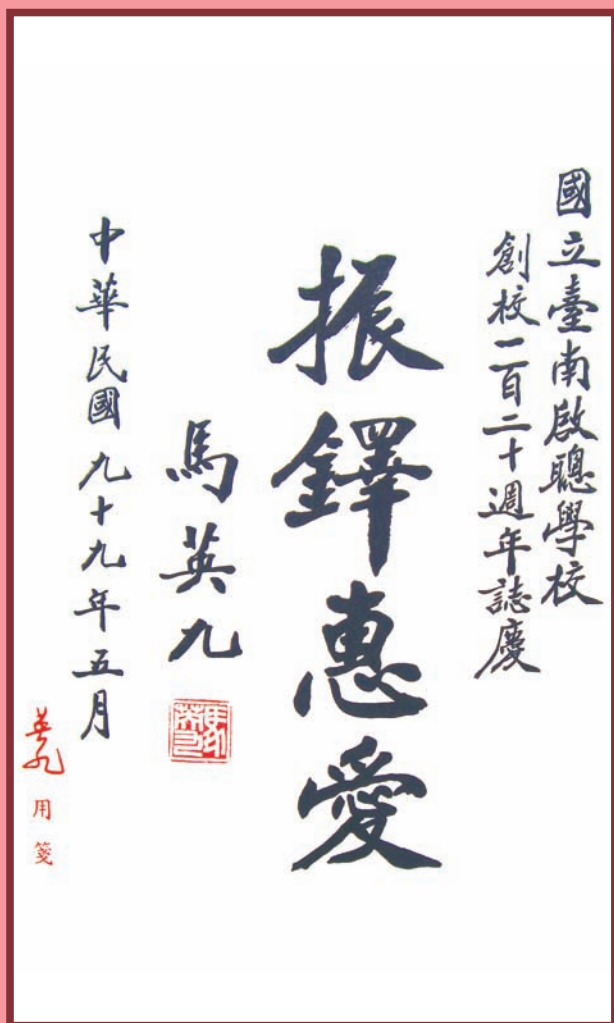 國立臺南啟聰學校
創校一百二十週年誌慶
振鐸惠愛
馬英九
中華民國九十九年五月
英九用箋